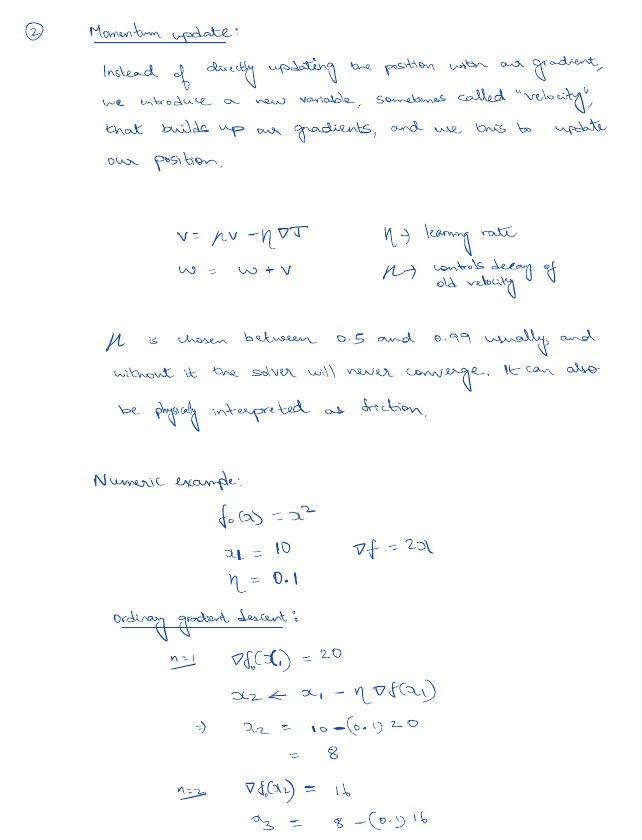 ② Momentum update:
Instead of directly updating the position with our gradient,
we introduce a new variable, sometimes called "velocity",
that builds up our gradients, and use this to update
our position.
v = μv - η∇J    η → learning rate
w = w + v    μ → controls decay of
old velocity
μ is chosen between 0.5 and 0.99 usually, and
without it the solver will never converge. It can also
be physically interpreted as friction.
Numeric example:
f₀(x) = x²
x₁ = 10    ∇f = 2x
η = 0.1
Ordinary gradient descent:
n=1    ∇f₀(x₁) = 20
x₂ ← x₁ - η∇f(x₁)
⇒ x₂ = 10 - (0.1) 20
= 8
n=2    ∇f₀(x₂) = 16
x₃ = 8 - (0.1) 16